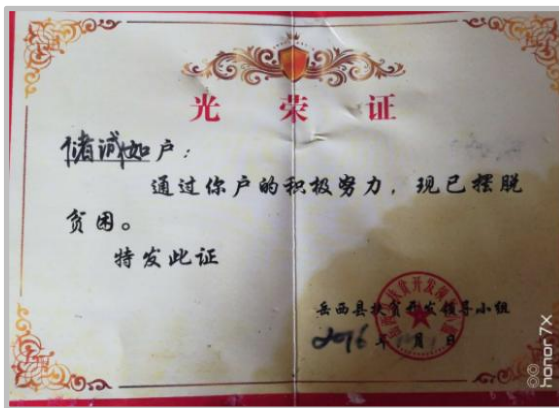 光荣证
储诚如户:
通过你户的积极努力,现已摆脱
贫困。
特发此证
岳西县扶贫开发领导小组
2016年 月 日
honor 7X